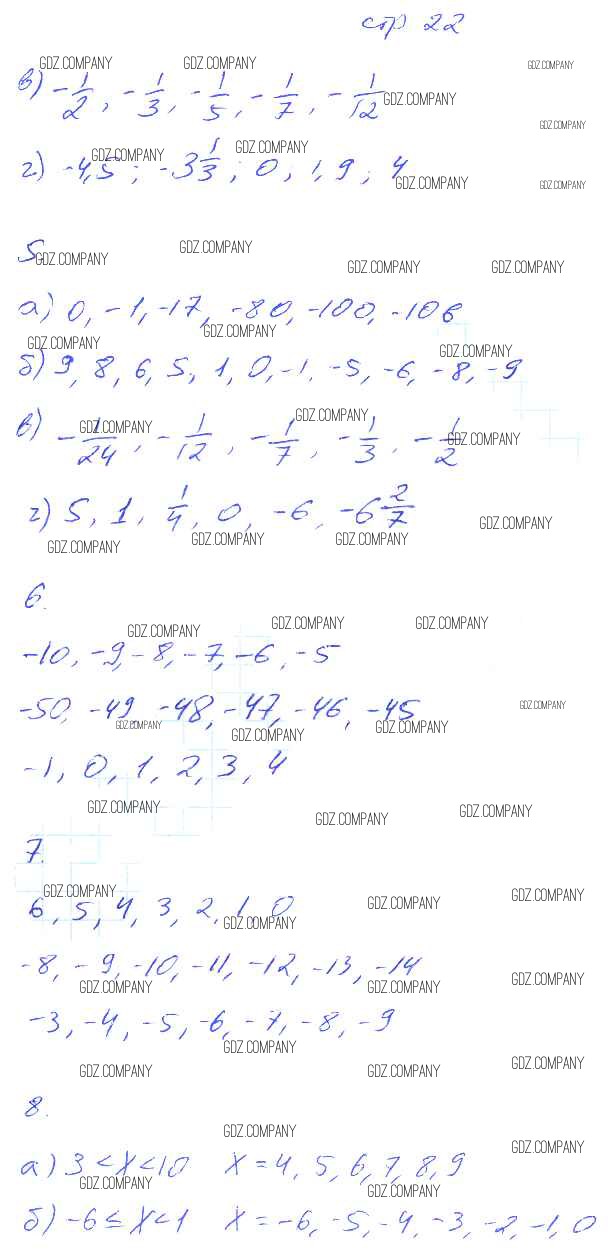 стр 22
GDZ.COMPANY GDZ.COMPANY GDZ.COMPANY
в) -1/2, -1/3, -1/5, -1/7, -1/12
GDZ.COMPANY
GDZ.COMPANY
GDZ.COMPANY GDZ.COMPANY
г) -4,5; -3 1/3; 0; 1,9; 4
GDZ.COMPANY GDZ.COMPANY
5.
GDZ.COMPANY GDZ.COMPANY GDZ.COMPANY GDZ.COMPANY
а) 0, -1, -17, -80, -100, -106
GDZ.COMPANY GDZ.COMPANY GDZ.COMPANY
б) 9, 8, 6, 5, 1, 0, -1, -5, -6, -8, -9
GDZ.COMPANY GDZ.COMPANY GDZ.COMPANY
в) -1/24, -1/12, -1/7, -1/3, -1/2
г) 5, 1, 1/4, 0, -6, -6 2/7
GDZ.COMPANY GDZ.COMPANY GDZ.COMPANY GDZ.COMPANY
6.
GDZ.COMPANY GDZ.COMPANY GDZ.COMPANY
-10, -9, -8, -7, -6, -5
-50, -49, -48, -47, -46, -45
GDZ.COMPANY GDZ.COMPANY GDZ.COMPANY GDZ.COMPANY
-1, 0, 1, 2, 3, 4
GDZ.COMPANY GDZ.COMPANY GDZ.COMPANY
7.
GDZ.COMPANY GDZ.COMPANY GDZ.COMPANY
6, 5, 4, 3, 2, 1, 0
GDZ.COMPANY
-8, -9, -10, -11, -12, -13, -14
GDZ.COMPANY GDZ.COMPANY GDZ.COMPANY
-3, -4, -5, -6, -7, -8, -9
GDZ.COMPANY
GDZ.COMPANY GDZ.COMPANY GDZ.COMPANY
8.
GDZ.COMPANY GDZ.COMPANY
а) 3 < x < 10 x = 4, 5, 6, 7, 8, 9
GDZ.COMPANY GDZ.COMPANY
б) -6 ≤ x < 1 x = -6, -5, -4, -3, -2, -1, 0